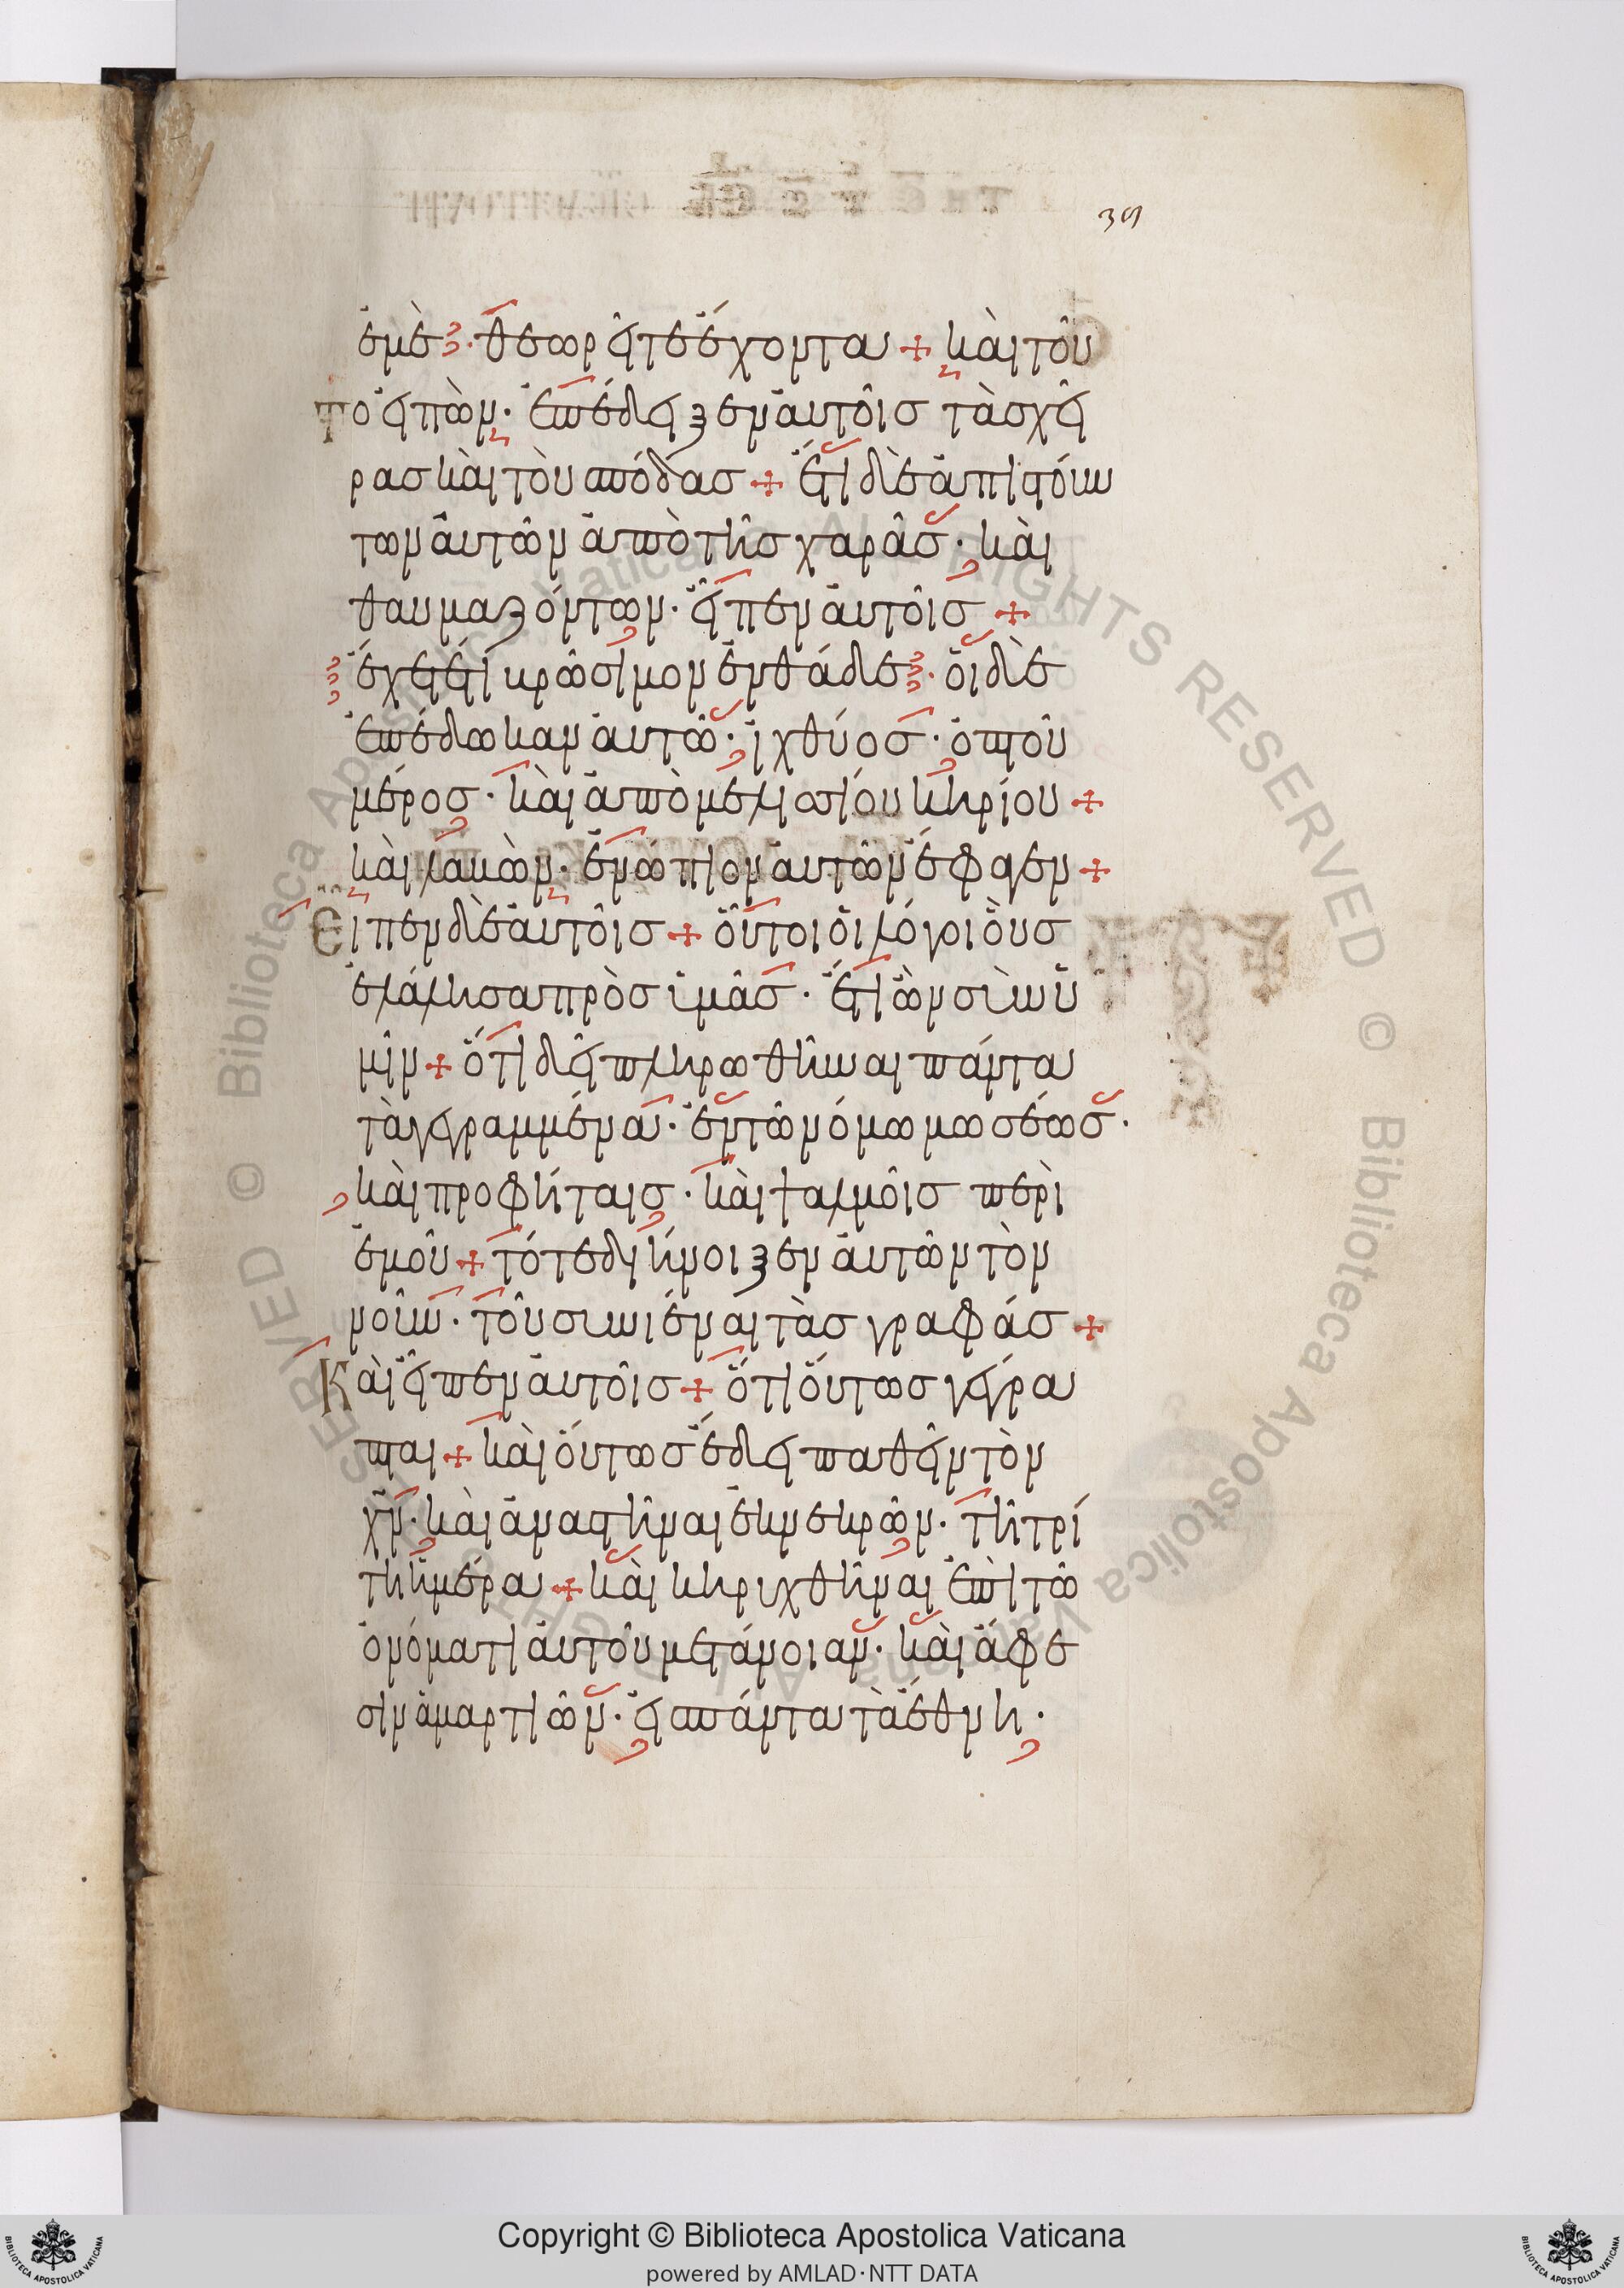 39
ἐμὲ · θεωρεῖτε ἔχοντα + καὶ τοῦ
το εἰπὼν · ἐπέδειξεν αὐτοῖσ τὰσ χεῖ
ρασ καὶ τοὺσ πόδασ + ἔτι δὲ ἀπιστούν
των αὐτῶν ἀπὸ τῆσ χαρᾶσ · καὶ
θαυμαζόντων · εἶπεν αὐτοῖσ +
ἔχετέ τι βρῶσιμον ἐνθάδε · οἱ δὲ
ἐπέδωκαν αὐτῶ · ἰχθύοσ · ὀπτοῦ
μέροσ · καὶ ἀπὸ μελισσίου κηρίου +
καὶ λαβὼν · ἐνώπιον αὐτῶν ἔφαγεν +
Εἶπεν δὲ αὐτοῖσ + οὗτοι οἱ λόγοι οὓσ
ἐλάλησα πρὸσ ὑμᾶσ · ἔτι ὢν σὺν ὑ
μῖν + ὅτι δεῖ πληρωθῆναι πάντα
τὰ γεγραμμένα · ἐν τῶ νόμω μωσέωσ ·
καὶ προφήταισ · καὶ ψαλμοῖσ περὶ
ἐμοῦ + τότε διήνοιξεν αὐτῶν τὸν
νοῦν · τοῦ συνιέναι τὰσ γραφάσ +
Καὶ εἶπεν αὐτοῖσ + ὅτι οὕτωσ γέγρα
πται + καὶ οὕτωσ ἔδει παθεῖν τὸν
χν · καὶ ἀναστῆναι ἐκ νεκρῶν · τῆ τρί
τη ἡμέρα + καὶ κηρυχθῆναι ἐπὶ τῶ
ὀνόματι αὐτοῦ μετάνοιαν · καὶ ἄφε
σιν ἁμαρτιῶν · εἰσ πάντα τὰ ἔθνη ·
Copyright © Biblioteca Apostolica Vaticana
powered by AMLAD·NTT DATA